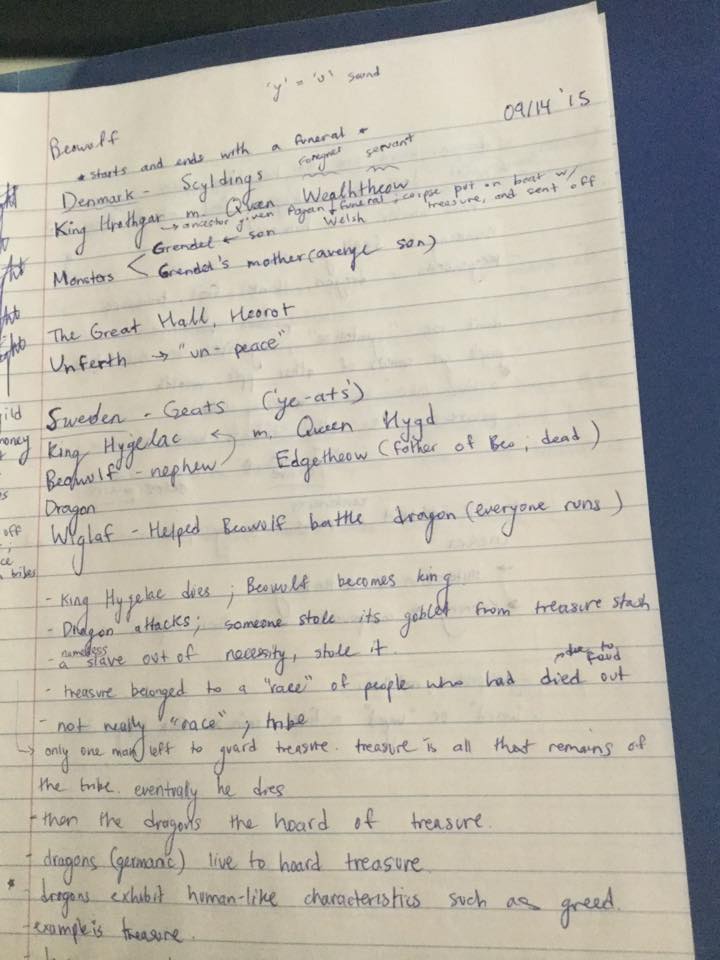 'y' = 'u' sound
09/14 '15
Beowulf
* starts and ends with a funeral *
foreigner servant
Denmark - Scyldings
King Hrothgar m. Queen Wealhtheow
→ ancestor given Pagan funeral; corpse put on boat w/ treasure, and sent off
Welsh
Monsters < Grendel ← son
Grendel's mother (avenge son)
The Great Hall, Heorot
Unferth → "un-peace"
Sweden - Geats ('ye-ats')
King Hygelac m. Queen Hygd
Beowulf - nephew Edgetheow (father of Beo; dead)
Dragon
Wiglaf - Helped Beowulf battle dragon (everyone runs)
- King Hygelac dies; Beowulf becomes king
- Dragon attacks; someone stole its goblet from treasure stash
nameless
- a slave out of necessity, stole it.
due to feud
- treasure belonged to a "race" of people who had died out
- not really "race"; tribe
→ only one man left to guard treasure. treasure is all that remains of
the tribe. eventually he dies
- then the dragons the hoard of treasure.
- dragons (germanic) live to hoard treasure
* - dragons exhibit human-like characteristics such as greed.
- example is treasure.
ild
money
off
tribes